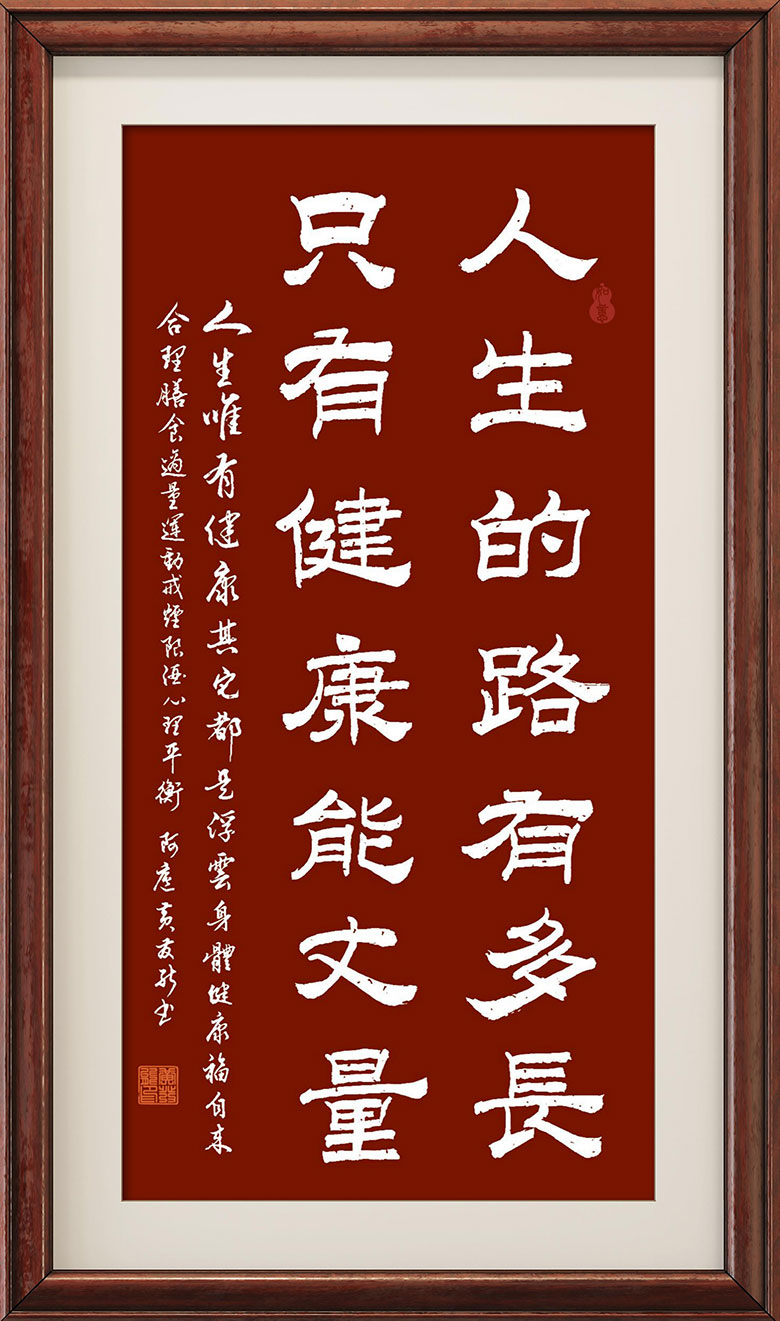 人生的路有多長
只有健康能丈量
人生唯有健康其它都是浮雲身體健康福自来
合理膳食適量運動戒煙限酒心理平衡 阿廬黄友龍书